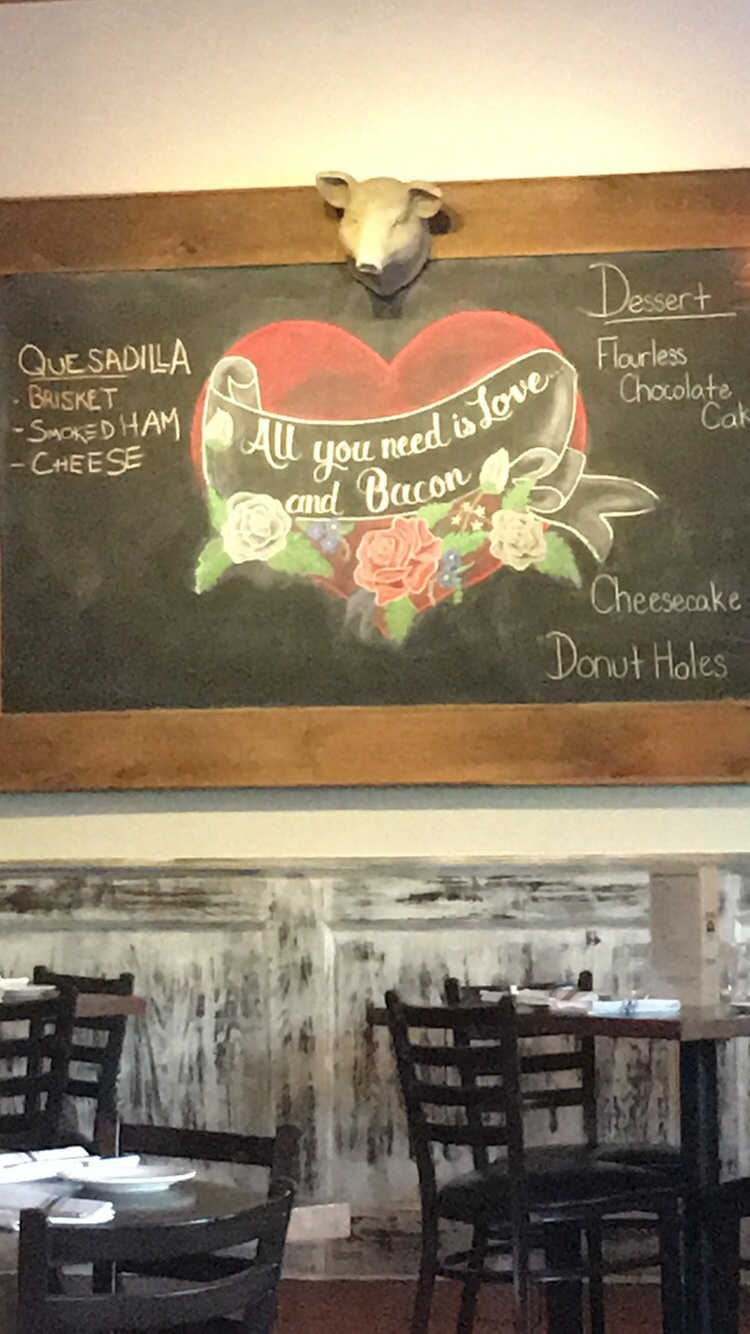 QUESADILLA
- BRISKET
- SMOKED HAM
- CHEESE
All you need is Love...
and Bacon
Dessert
Flourless
Chocolate
Cak
Cheesecake
Donut Holes